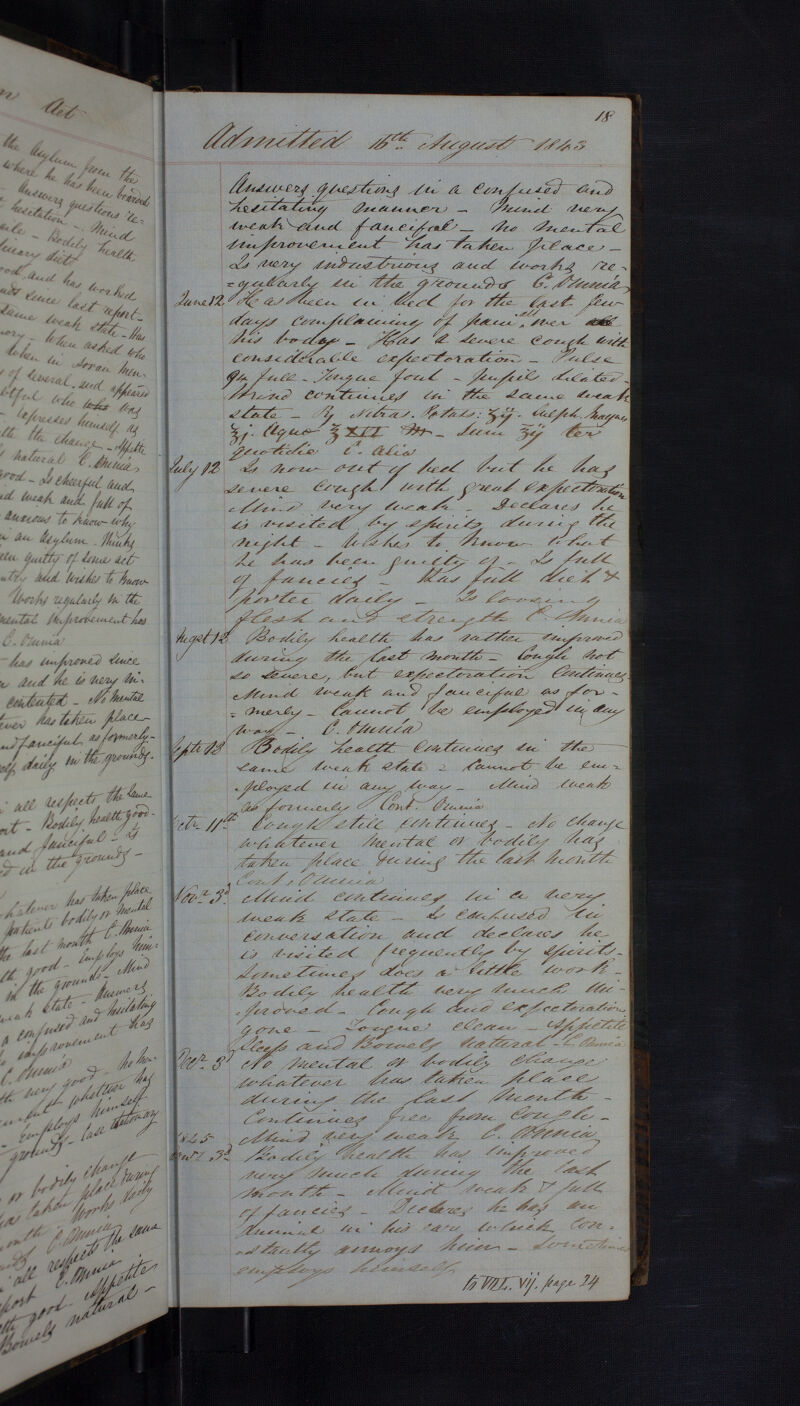 n Act
the Asylum from the
where he has been boarded
Answers questions re-
hesitation - Mind
Bodily health
dinary diet
and has worked
since last report -
same weak state - Has
When asked who
taken in
of several - and appeared
who who was
expresses himself as
with the change - Appetite
natural C. Omnia
good - Is cheerful and
weak and full of
anxious to know why
in an asylum - Thinks
been guilty of some act
and wishes to know
Works regularly in the
mental improvement has
C. Omnia
has improved since
and he is very in-
contented - No mental
ever has taken place
and fanciful as formerly -
daily in the grounds.
all respects the same
Bodily health good -
and fanciful - Is
in the grounds -
whatever has taken place
patients bodily or mental
the last month C. Omnia
good - Employs him-
in the grounds - Mind
weak state - Answers
a confused and hesitating
improvement has
C. Omnia
very good - No
whatever has
Employs himself
grounds - Case stationary
or bodily change
has taken place during
month - Works daily
C. Omnia
all respects the same
report C. Omnia
good Appetite
Bowels natural -
18
Admitted 16th August 1843
Answers questions in a confused and
hesitating manner - Mind very
weak and fanciful - No mental
improvement has taken place -
Is very industrious and works re-
=gularly in the grounds C. Omnia
June 12 Has been in bed for the last few
days complaining of pain all over all
his body - Has a severe cough with
considerable expectoration - Pulse
94 full - Tongue foul - pupils dilated -
Mind continues in the same weak
state - Rx Nitras. Potass: ʒij. Sulph. Magnes
℥j. Aqua ℥ XII M - Sum ℥ij ter
quotidie C. alia
July 12 Is now out of bed but he has
severe cough with great expectoration
Mind very weak - Declares he
is visited by spirits during the
night - Wishes to know what
he has been guilty of - Is full
of fancies - Has full diet &
porter daily - Is loosing
flesh and strength C. Omnia
Augst 12 Bodily health has rather improved
during the last month - Cough not
so severe, but expectoration continues.
Mind weak and fanciful as for-
=merly - Cannot be employed in any
way - C. Omnia
Septr 13 Bodily health continues in the
same weak state - Cannot be em-
-ployed in any way - Mind weak
as formerly Cont. Omnia
Octr 11th Cough still continues - No change
whatever mental or bodily has
taken place during the last month
Cont. Omnia
Novr 3d Mind continues in a very
weak state - Is confused in
conversation and declares he
is visited frequently by spirits -
Sometimes does a little work -
Bodily health very much im-
-proved - Cough and expectoration
gone - Tongue clean - Appetite
Sleep and Bowels natural - C. Omnia
Decr 3d No mental or bodily change
whatever has taken place
during the last month -
Continues free from cough -
Mind very weak C. Omnia
1845
Jany 3d Bodily health has improved
very much during the last
month - Mind weak & full
of fancies - Declares he has an
animal in his ears which con-
-stantly annoys him - Sometimes
employs himself
to Vol. vij. page 24